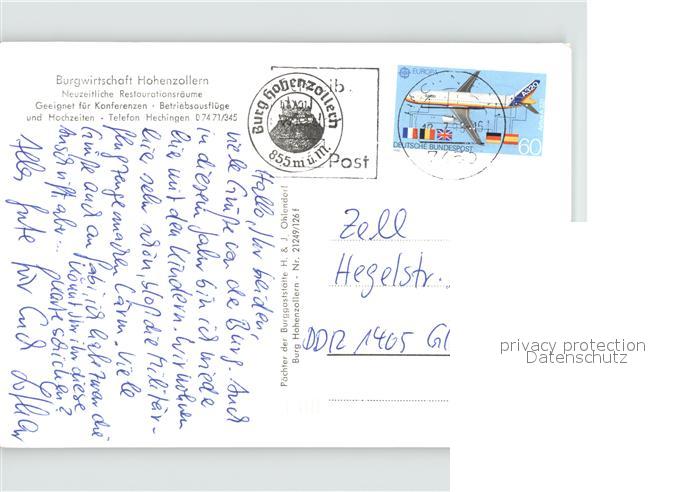 Burgwirtschaft Hohenzollern
Neuzeitliche Restaurationsräume
Geeignet für Konferenzen · Betriebsausflüge
und Hochzeiten · Telefon Hechingen 0 74 71/345
Burg Hohenzollern
855 m ü. M.
Post
EUROPA
A320
DEUTSCHE BUNDESPOST
60
Hallo, Ihr beiden,
viele Grüße von der Burg. Auch
in diesem Jahr bin ich wieder
hier mit den Kindern. Wir wohnen
hier sehr schön, bloß die Militär-
flugzeuge machen Lärm. Viele
Grüße auch an
Anschrift aber...
Könnt Ihr ihr diese
Karte schicken?
Alles Gute für Euch Lothar
Pächter der Burggaststätte H. & J. Ohlendorf
Burg Hohenzollern - Nr. 21249/126 f
Zell
Hegelstr.
DDR 1405 Gl
privacy protection
Datenschutz